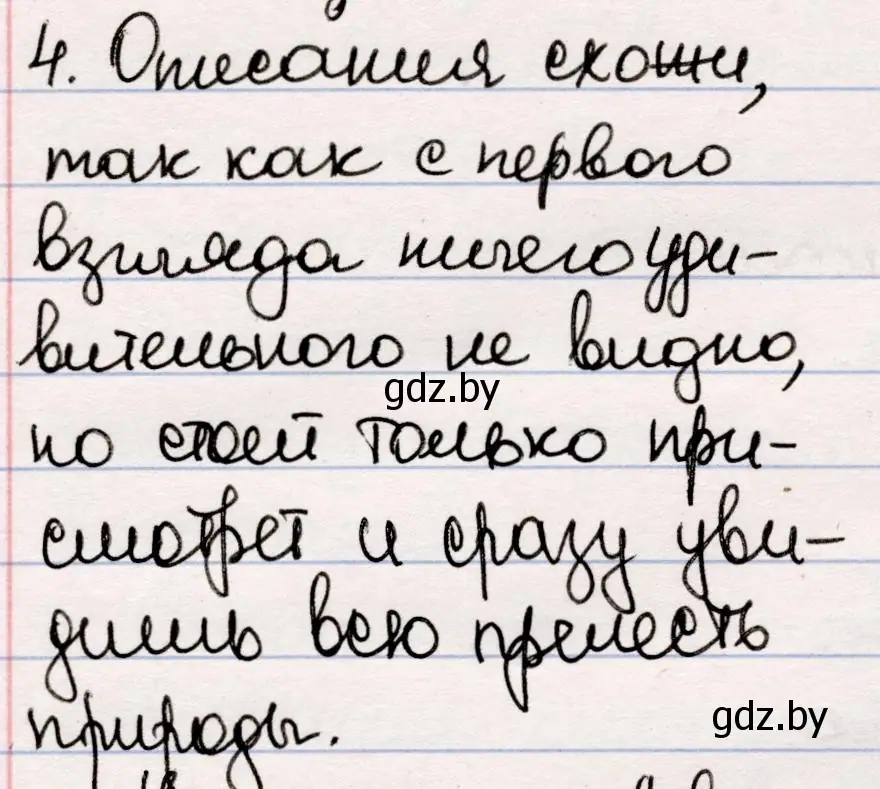 4. Описания схожи,
так как с первого
взгляда ничего уди-
вительного не видно,
gdz.by
но стоит только при-
смотрет и сразу уви-
дишь всю прелесть
природы.
gdz.by